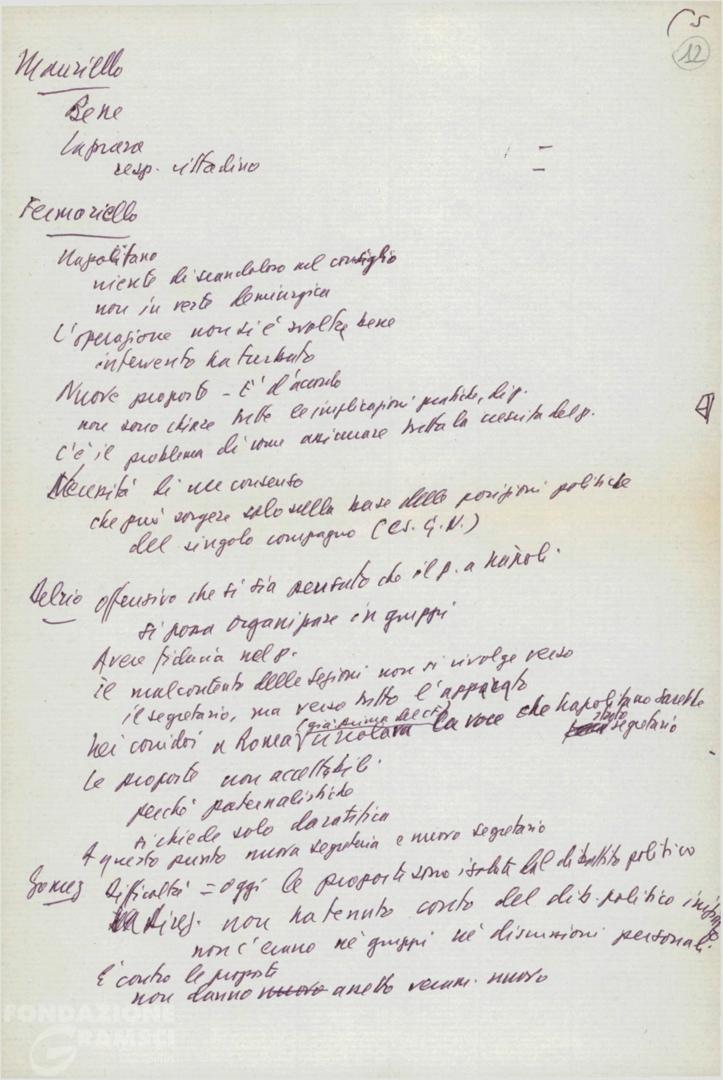 5
12
Mauriello
Bene
Lapiccirella
resp. cittadino
Fermariello
Napolitano
niente di scandaloso nel consiglio
non in veste demiurgica
L'operazione non si è svolta bene
intervento ha turbato
Nuove proposte - È d'accordo
non sono chiare tutte le implicazioni pratiche, di p.
c'è il problema di come assicurare tutta la crescita del p.
Necessità di un consenso
che può sorgere solo sulla base delle posizioni politiche
del singolo compagno (Es. G. N.)
Delrio offensivo che si sia pensato che il p. a Napoli
si possa organizzare in gruppi
Avere fiducia nel p.
il malcontento delle sezioni non si rivolge verso
il segretario, ma verso tutto l'apparato
(già prima del CF)
Nei corridoi a Roma circolava la voce che Napolitano sarebbe
stato segretario
Le proposte non accettabili
perché paternalistiche
si chiede solo la ratifica
A questo punto nuova segreteria e nuovo segretario
Gomez Difficoltà = oggi le proposte sono isolate dal dibattito politico
Direz. non ha tenuto conto del dib. politico in
non c'erano né gruppi né discussioni personali.
È contro le proposte
non danno nuovo assetto veram. nuovo
FONDAZIONE
GRAMSCI